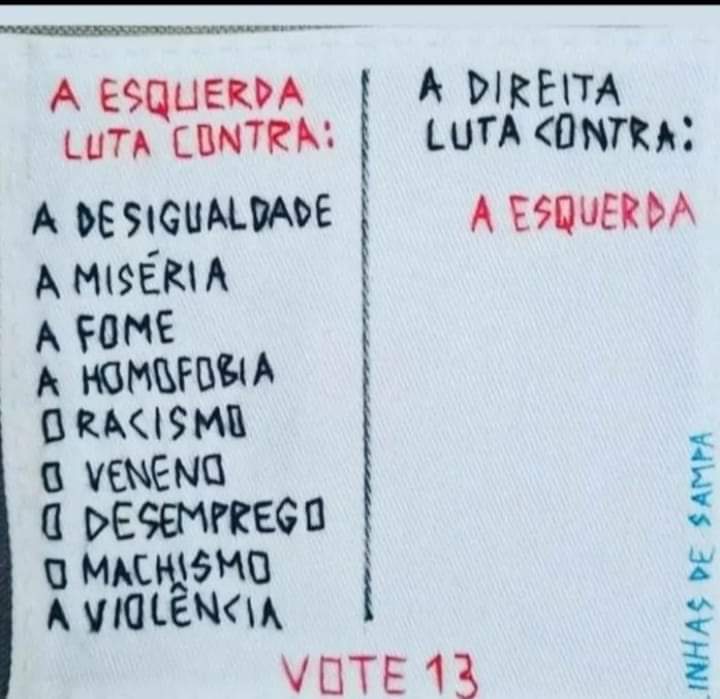 A ESQUERDA
LUTA CONTRA:
A DESIGUALDADE
A MISÉRIA
A FOME
A HOMOFOBIA
O RACISMO
O VENENO
O DESEMPREGO
O MACHISMO
A VIOLÊNCIA
A DIREITA
LUTA CONTRA:
A ESQUERDA
VOTE 13
DE SAMPA